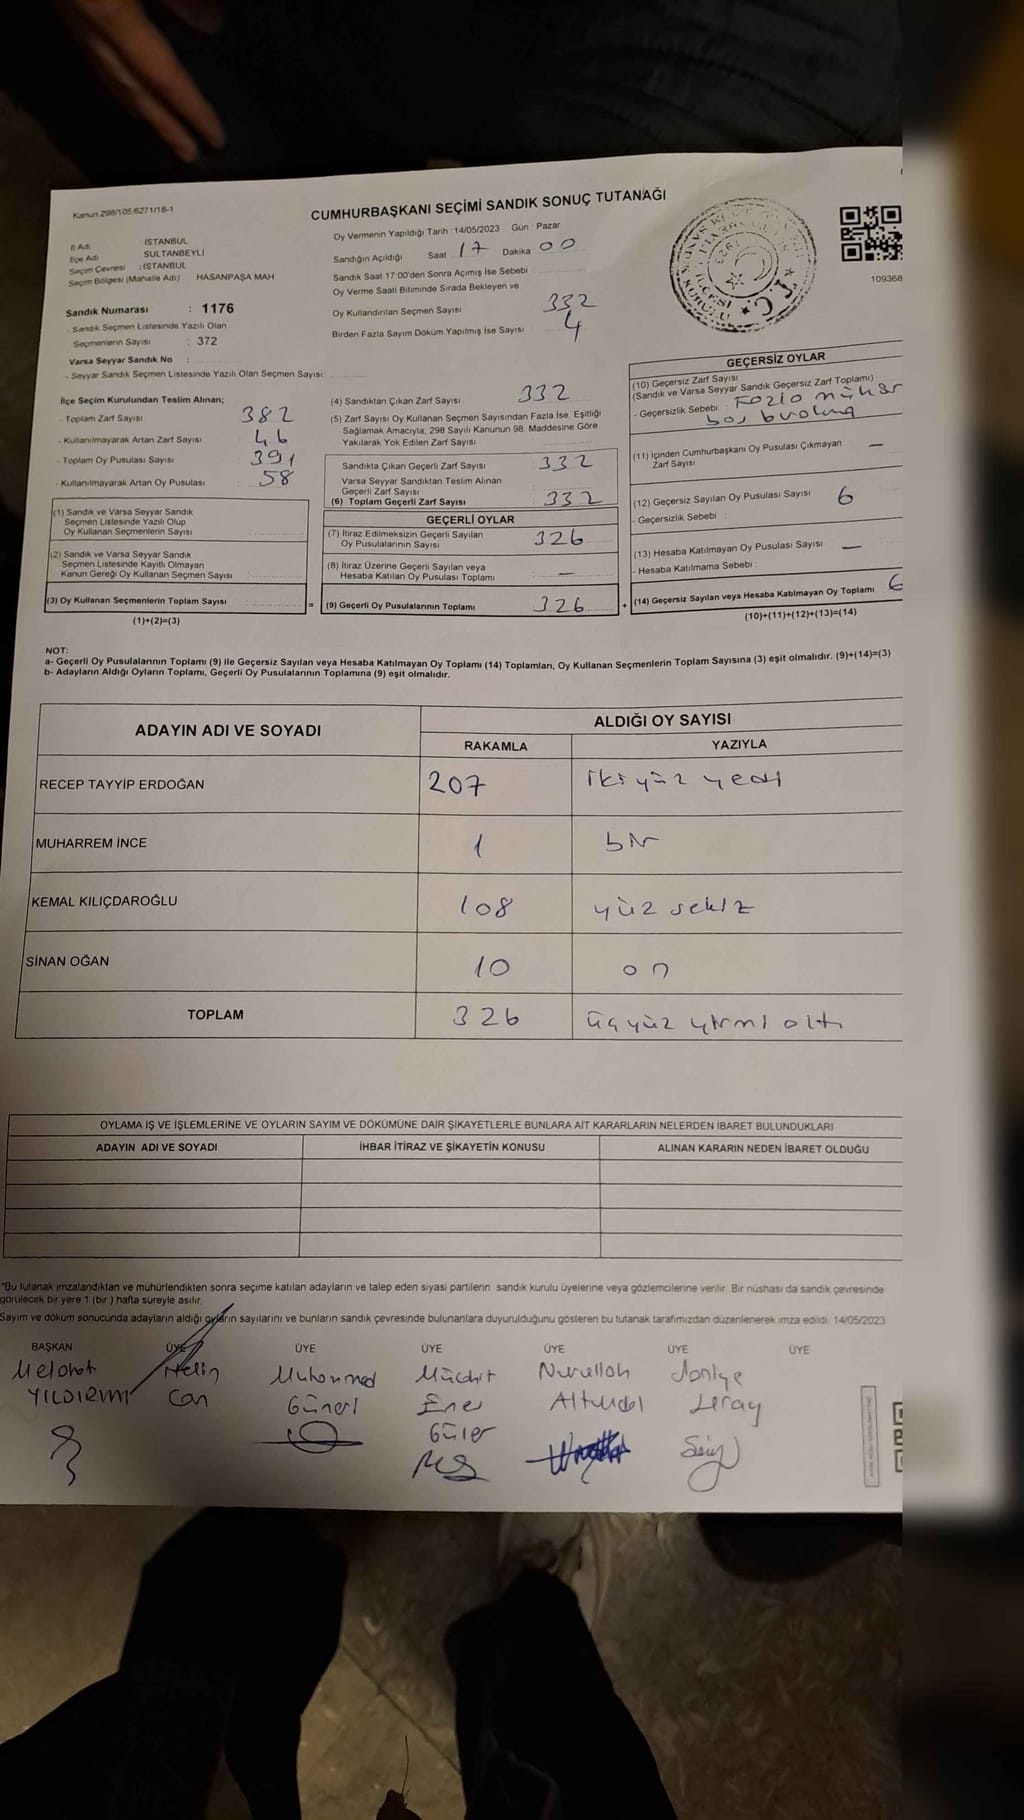 Kanun:298/105,6271/16-1
CUMHURBAŞKANI SEÇİMİ SANDIK SONUÇ TUTANAĞI
İl Adı İSTANBUL
İlçe Adı SULTANBEYLİ
Seçim Çevresi : İSTANBUL
Seçim Bölgesi (Mahalle Adı) HASANPAŞA MAH
Sandık Numarası : 1176
- Sandık Seçmen Listesinde Yazılı Olan
Seçmenlerin Sayısı : 372
Varsa Seyyar Sandık No :
- Seyyar Sandık Seçmen Listesinde Yazılı Olan Seçmen Sayısı:
Oy Vermenin Yapıldığı Tarih : 14/05/2023 Gün : Pazar
Sandığın Açıldığı Saat 17 Dakika 00
Sandık Saat 17:00'den Sonra Açımış İse Sebebi
Oy Verme Saati Bitiminde Sırada Bekleyen ve
Oy Kullandırılan Seçmen Sayısı 332
Birden Fazla Sayım Döküm Yapılmış İse Sayısı 4
109368
İlçe Seçim Kurulundan Teslim Alınan;
- Toplam Zarf Sayısı 382
- Kullanılmayarak Artan Zarf Sayısı 46
- Toplam Oy Pusulası Sayısı 391
- Kullanılmayarak Artan Oy Pusulası 58
(1) Sandık ve Varsa Seyyar Sandık
Seçmen Listesinde Yazılı Olup
Oy Kullanan Seçmenlerin Sayısı
(2) Sandık ve Varsa Seyyar Sandık
Seçmen Listesinde Kayıtlı Olmayan
Kanun Gereği Oy Kullanan Seçmen Sayısı
(3) Oy Kullanan Seçmenlerin Toplam Sayısı =
(1)+(2)=(3)
(4) Sandıktan Çıkan Zarf Sayısı 332
(5) Zarf Sayısı Oy Kullanan Seçmen Sayısından Fazla İse, Eşitliği
Sağlamak Amacıyla, 298 Sayılı Kanunun 98. Maddesine Göre
Yakılarak Yok Edilen Zarf Sayısı
Sandıkta Çıkan Geçerli Zarf Sayısı : 332
Varsa Seyyar Sandıktan Teslim Alınan
Geçerli Zarf Sayısı
(6) Toplam Geçerli Zarf Sayısı 332
GEÇERLİ OYLAR
(7) İtiraz Edilmeksizin Geçerli Sayılan
Oy Pusulalarının Sayısı 326
(8) İtiraz Üzerine Geçerli Sayılan veya
Hesaba Katılan Oy Pusulası Toplamı —
(9) Geçerli Oy Pusulalarının Toplamı 326 +
GEÇERSİZ OYLAR
(10) Geçersiz Zarf Sayısı
(Sandık ve Varsa Seyyar Sandık Geçersiz Zarf Toplamı)
- Geçersizlik Sebebi : Fazla mühür
boş
(11) İçinden Cumhurbaşkanı Oy Pusulası Çıkmayan —
Zarf Sayısı
(12) Geçersiz Sayılan Oy Pusulası Sayısı 6
- Geçersizlik Sebebi :
(13) Hesaba Katılmayan Oy Pusulası Sayısı —
- Hesaba Katılmama Sebebi :
(14) Geçersiz Sayılan veya Hesaba Katılmayan Oy Toplamı 6
(10)+(11)+(12)+(13)=(14)
NOT:
a- Geçerli Oy Pusulalarının Toplamı (9) ile Geçersiz Sayılan veya Hesaba Katılmayan Oy Toplamı (14) Toplamları, Oy Kullanan Seçmenlerin Toplam Sayısına (3) eşit olmalıdır. (9)+(14)=(3)
b- Adayların Aldığı Oyların Toplamı, Geçerli Oy Pusulalarının Toplamına (9) eşit olmalıdır.
ADAYIN ADI VE SOYADI ALDIĞI OY SAYISI
RAKAMLA YAZIYLA
RECEP TAYYİP ERDOĞAN 207 iki yüz yedi
MUHARREM İNCE 1 bir
KEMAL KILIÇDAROĞLU 108 yüz sekiz
SİNAN OĞAN 10 on
TOPLAM 326 üçyüz yirmi altı
OYLAMA İŞ VE İŞLEMLERİNE VE OYLARIN SAYIM VE DÖKÜMÜNE DAİR ŞİKAYETLERLE BUNLARA AİT KARARLARIN NELERDEN İBARET BULUNDUKLARI
ADAYIN ADI VE SOYADI İHBAR İTİRAZ VE ŞİKAYETİN KONUSU ALINAN KARARIN NEDEN İBARET OLDUĞU
*Bu tutanak imzalandıktan ve mühürlendikten sonra seçime katılan adayların ve talep eden siyasi partilerin sandık kurulu üyelerine veya gözlemcilerine verilir. Bir nüshası da sandık çevresinde
görülecek bir yere 1 (bir ) hafta süreyle asılır.
Sayım ve döküm sonucunda adayların aldığı oyların sayılarını ve bunların sandık çevresinde bulunanlara duyurulduğunu gösteren bu tutanak tarafımızdan düzenlenerek imza edildi. 14/05/2023
BAŞKAN ÜYE ÜYE ÜYE ÜYE ÜYE ÜYE
Melahat Helin Muhammed Mücahit Nurullah
YILDIRIM Can Güneri Ener
Güler